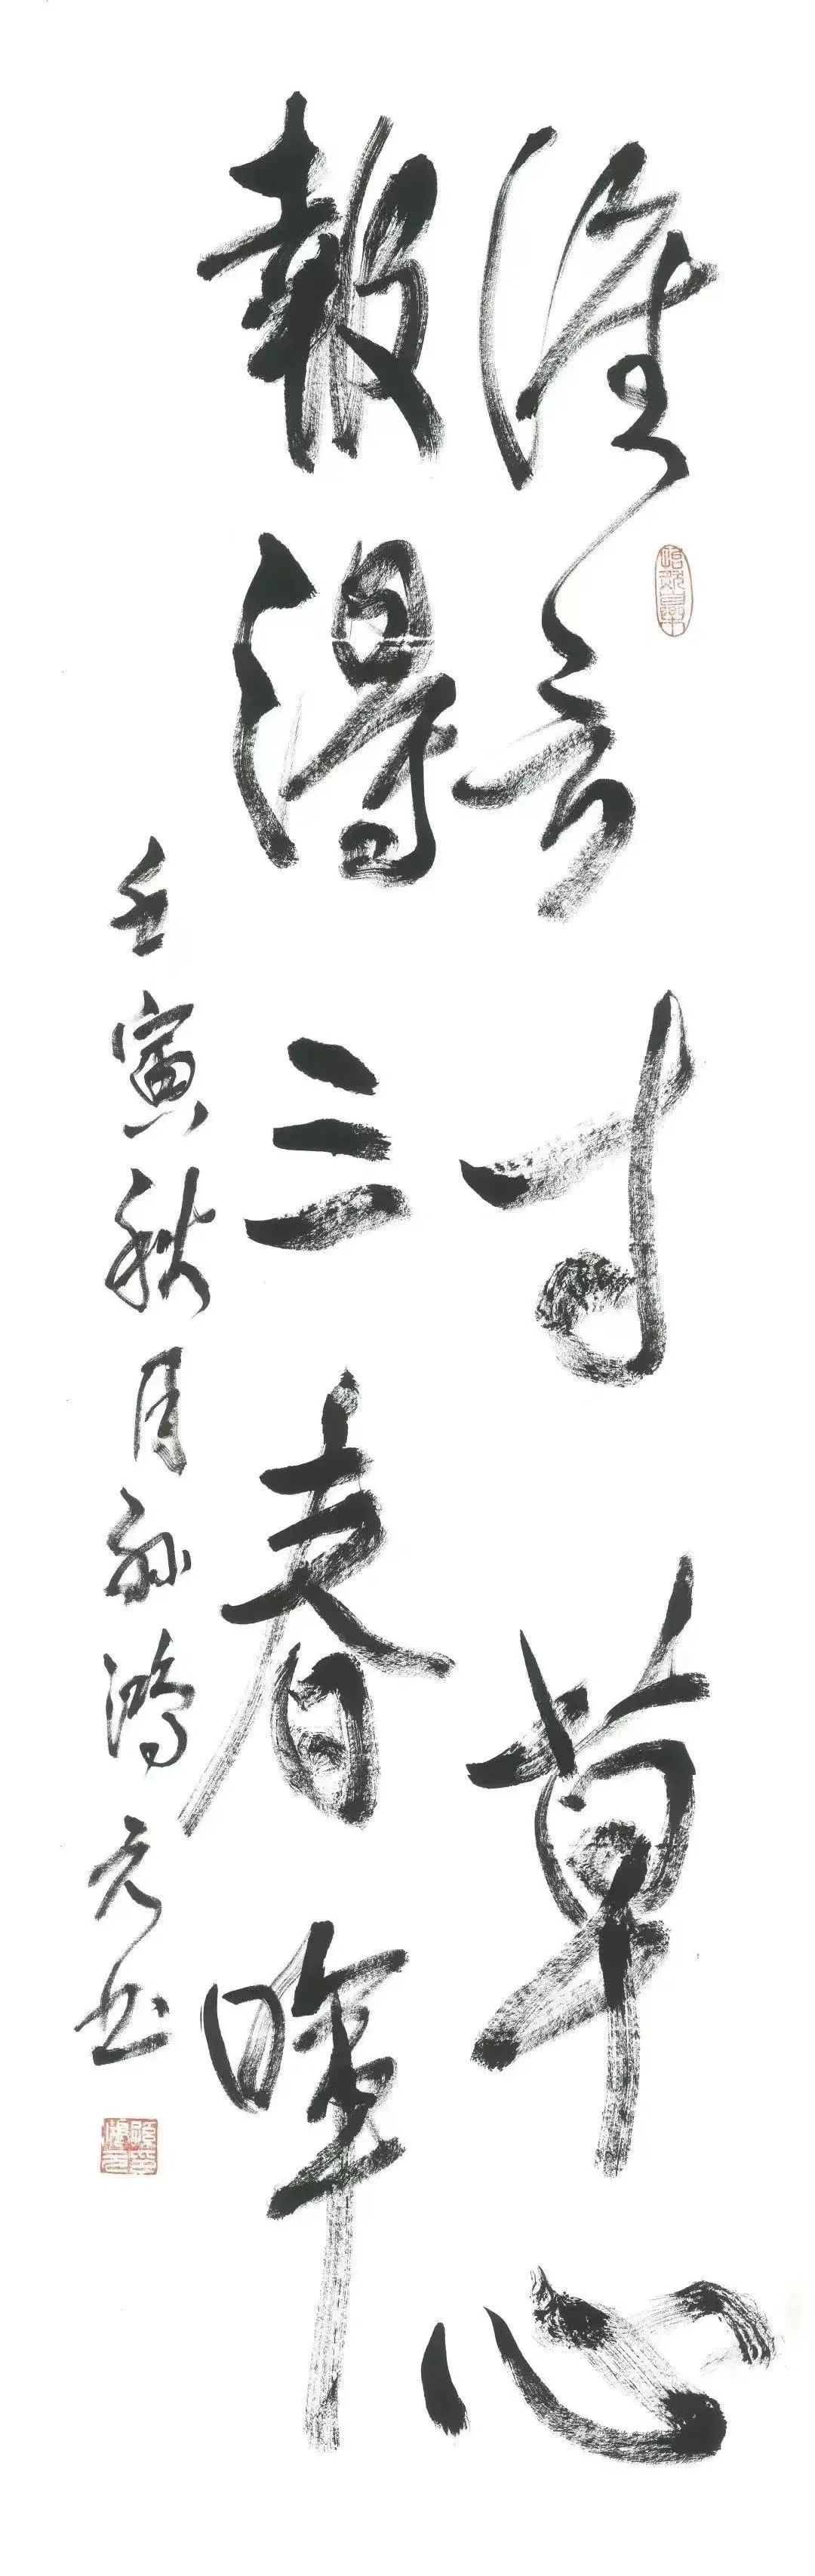 谁言寸草心
報得三春暉
壬寅秋月孙鸿元书